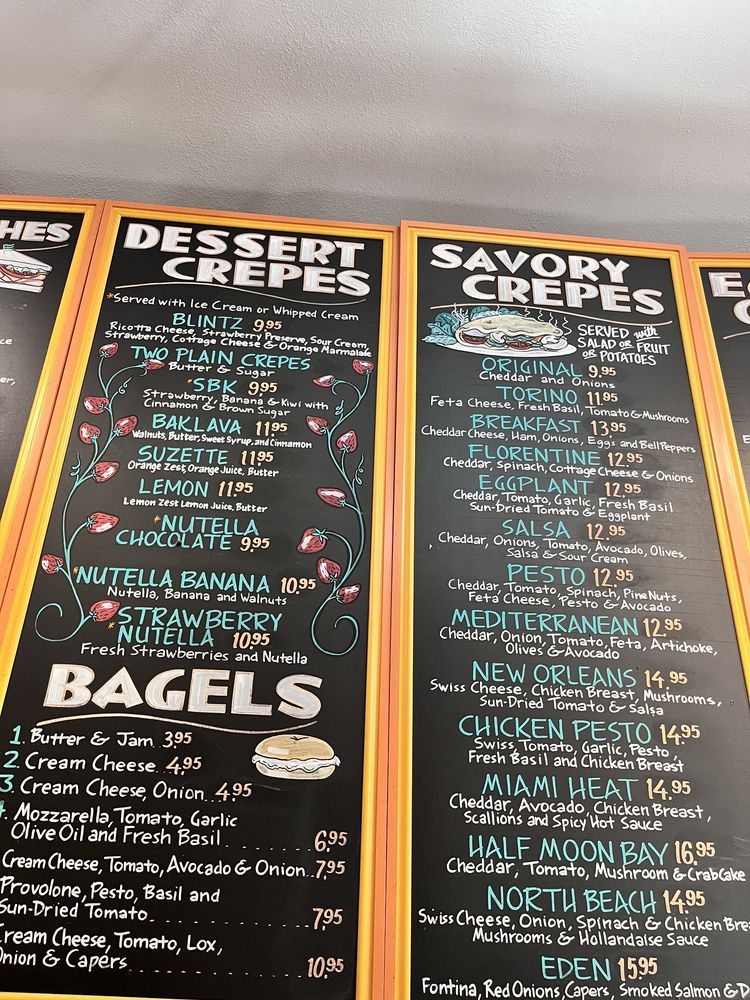 HES
DESSERT
CREPES
*Served with Ice Cream or Whipped Cream
BLINTZ 9.95
Ricotta Cheese, Strawberry Preserve, Sour Cream,
Strawberry, Cottage Cheese & Orange Marmalade
TWO PLAIN CREPES
Butter & Sugar
*SBK 9.95
Strawberry, Banana & Kiwi with
Cinnamon & Brown Sugar
BAKLAVA 11.95
Walnuts, Butter, Sweet Syrup, and Cinnamon
SUZETTE 11.95
Orange Zest, Orange Juice, Butter
LEMON 11.95
Lemon Zest Lemon Juice, Butter
*NUTELLA
CHOCOLATE 9.95
*NUTELLA BANANA 10.95
Nutella, Banana and Walnuts
*STRAWBERRY
NUTELLA 10.95
Fresh Strawberries and Nutella
BAGELS
1. Butter & Jam 3.95
2. Cream Cheese 4.95
3. Cream Cheese, Onion 4.95
Mozzarella, Tomato, Garlic
Olive Oil and Fresh Basil 6.95
Cream Cheese, Tomato, Avocado & Onion 7.95
Provolone, Pesto, Basil and
Sun-Dried Tomato 7.95
Cream Cheese, Tomato, Lox,
Onion & Capers 10.95
SAVORY
CREPES
SERVED with
SALAD OR FRUIT
OR POTATOES
ORIGINAL 9.95
Cheddar and Onions
TORINO 11.95
Feta Cheese, Fresh Basil, Tomato & Mushrooms
BREAKFAST 13.95
Cheddar Cheese, Ham, Onions, Eggs and Bell Peppers
FLORENTINE 12.95
Cheddar, Spinach, Cottage Cheese & Onions
EGGPLANT 12.95
Cheddar, Tomato, Garlic, Fresh Basil
Sun-Dried Tomato & Eggplant
SALSA 12.95
Cheddar, Onions, Tomato, Avocado, Olives,
Salsa & Sour Cream
PESTO 12.95
Cheddar, Tomato, Spinach, Pine Nuts,
Feta Cheese, Pesto & Avocado
MEDITERRANEAN 12.95
Cheddar, Onion, Tomato, Feta, Artichoke,
Olives & Avocado
NEW ORLEANS 14.95
Swiss Cheese, Chicken Breast, Mushrooms,
Sun-Dried Tomato & Salsa
CHICKEN PESTO 14.95
Swiss, Tomato, Garlic, Pesto,
Fresh Basil and Chicken Breast
MIAMI HEAT 14.95
Cheddar, Avocado, Chicken Breast,
Scallions and Spicy Hot Sauce
HALF MOON BAY 16.95
Cheddar, Tomato, Mushroom & Crab Cake
NORTH BEACH 14.95
Swiss Cheese, Onion, Spinach & Chicken Brea
Mushrooms & Hollandaise Sauce
EDEN 15.95
Fontina, Red Onions, Capers, Smoked Salmon & D